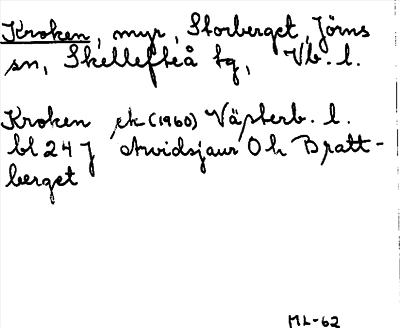 Kroken, myr, Storberget, Jörns
sn, Skellefteå tg, Vb. l.
Kroken ek (1960) Västerb. l.
bl 24 J Arvidsjaur Oh Bratt-
berget
ML-62